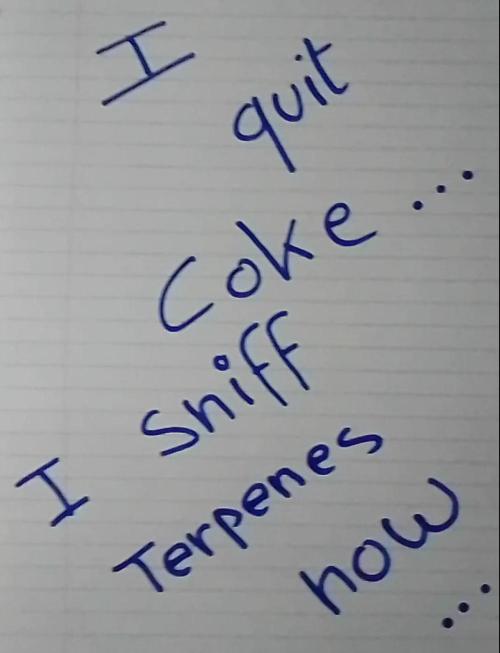 I quit
Coke ...
I Sniff
Terpenes
now ...